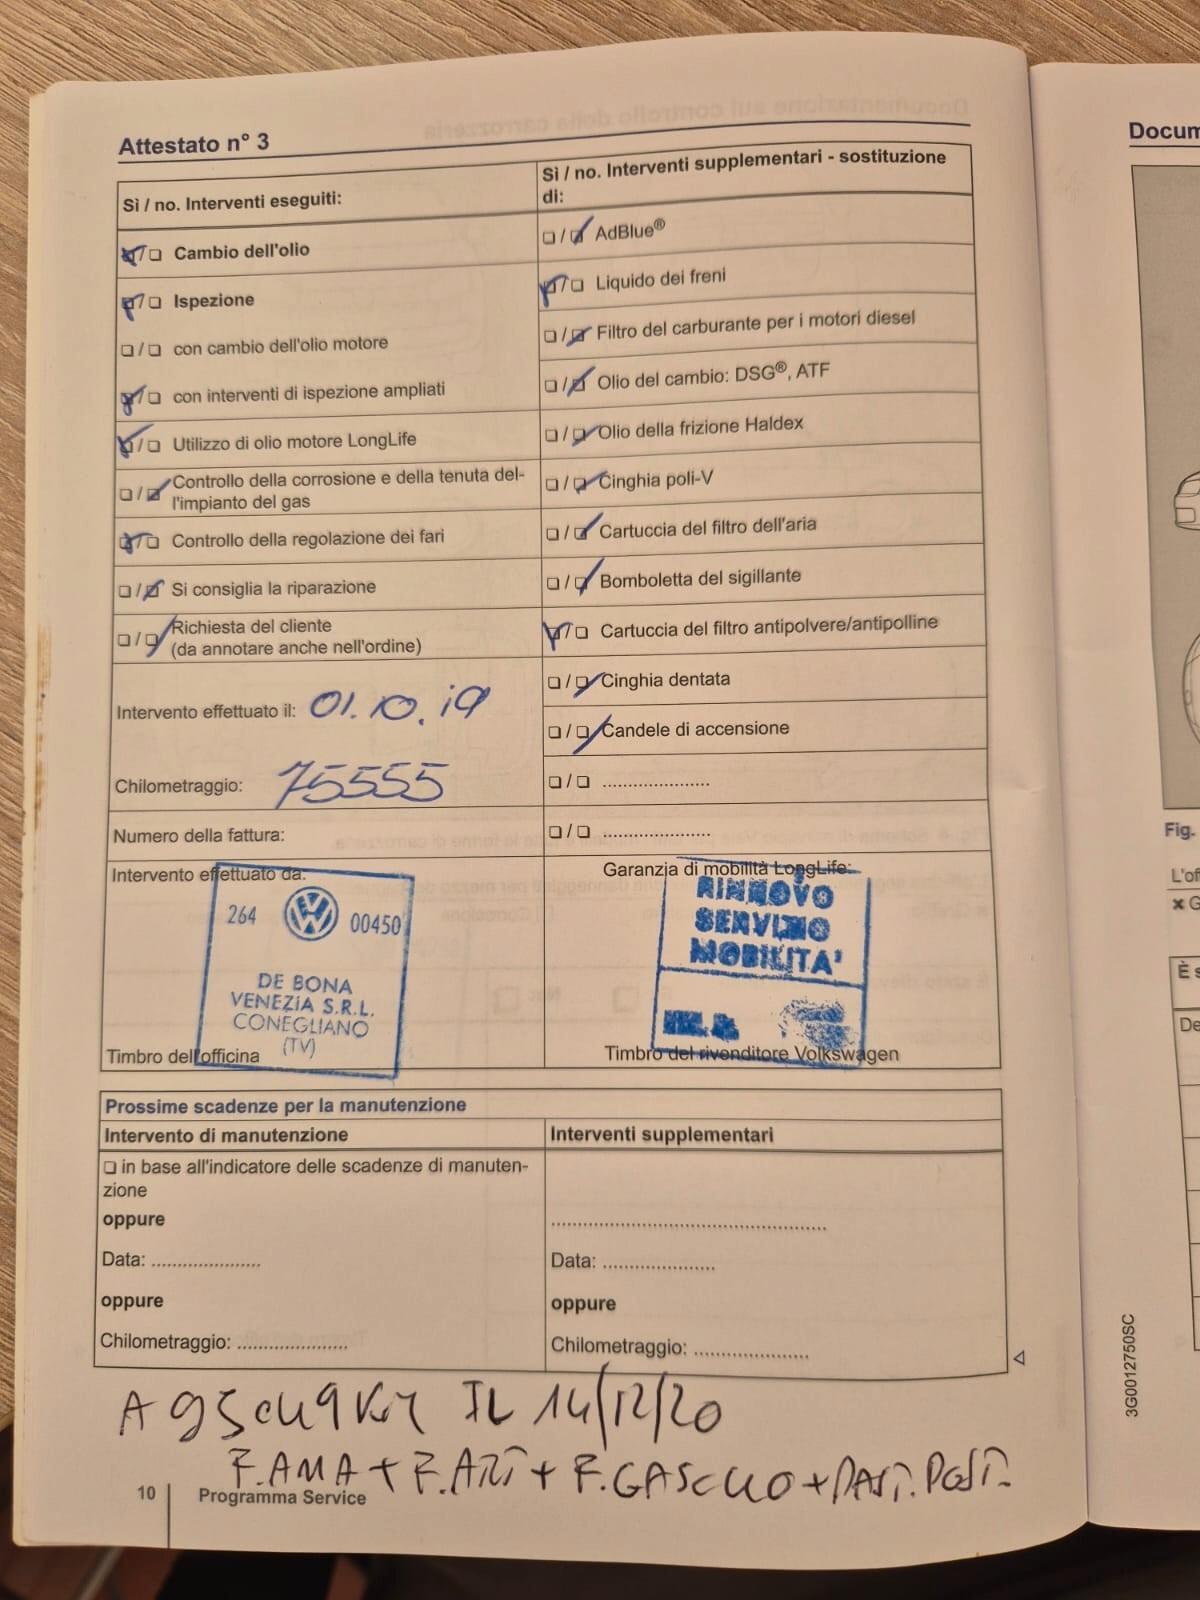 Attestato n° 3
Sì / no. Interventi eseguiti:
Cambio dell'olio
Ispezione
con cambio dell'olio motore
con interventi di ispezione ampliati
Utilizzo di olio motore LongLife
Controllo della corrosione e della tenuta del-
l'impianto del gas
Controllo della regolazione dei fari
Si consiglia la riparazione
Richiesta del cliente
(da annotare anche nell'ordine)
Intervento effettuato il: 01.10.19
Chilometraggio: 75555
Numero della fattura:
Sì / no. Interventi supplementari - sostituzione
di:
AdBlue®
Liquido dei freni
Filtro del carburante per i motori diesel
Olio del cambio: DSG®, ATF
Olio della frizione Haldex
Cinghia poli-V
Cartuccia del filtro dell'aria
Bomboletta del sigillante
Cartuccia del filtro antipolvere/antipolline
Cinghia dentata
Candele di accensione
Intervento effettuato da:
264 00450
DE BONA
VENEZIA S.R.L.
CONEGLIANO
(TV)
Timbro dell'officina
Garanzia di mobilità LongLife:
RINNOVO
SERVIZIO
MOBILITA'
Timbro del rivenditore Volkswagen
Prossime scadenze per la manutenzione
Intervento di manutenzione
in base all'indicatore delle scadenze di manuten-
zione
oppure
Data: .....................
oppure
Chilometraggio: .....................
Interventi supplementari
Data: .....................
oppure
Chilometraggio: .....................
A IL 14/12/20
F. + F. + F. +
10 Programma Service
Docum
Fig.
L'of
È s
De
3G0012750SC